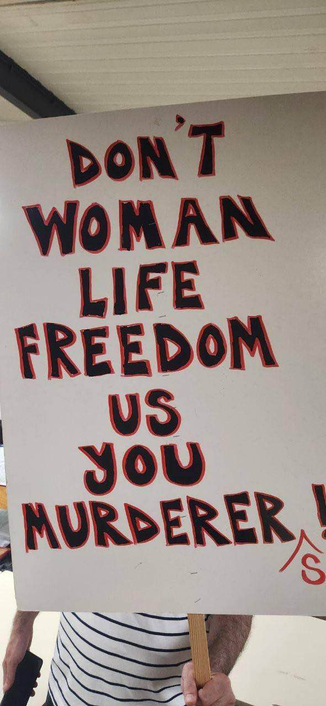 DON'T
WOMAN
LIFE
FREEDOM
US
YOU
MURDERERS!